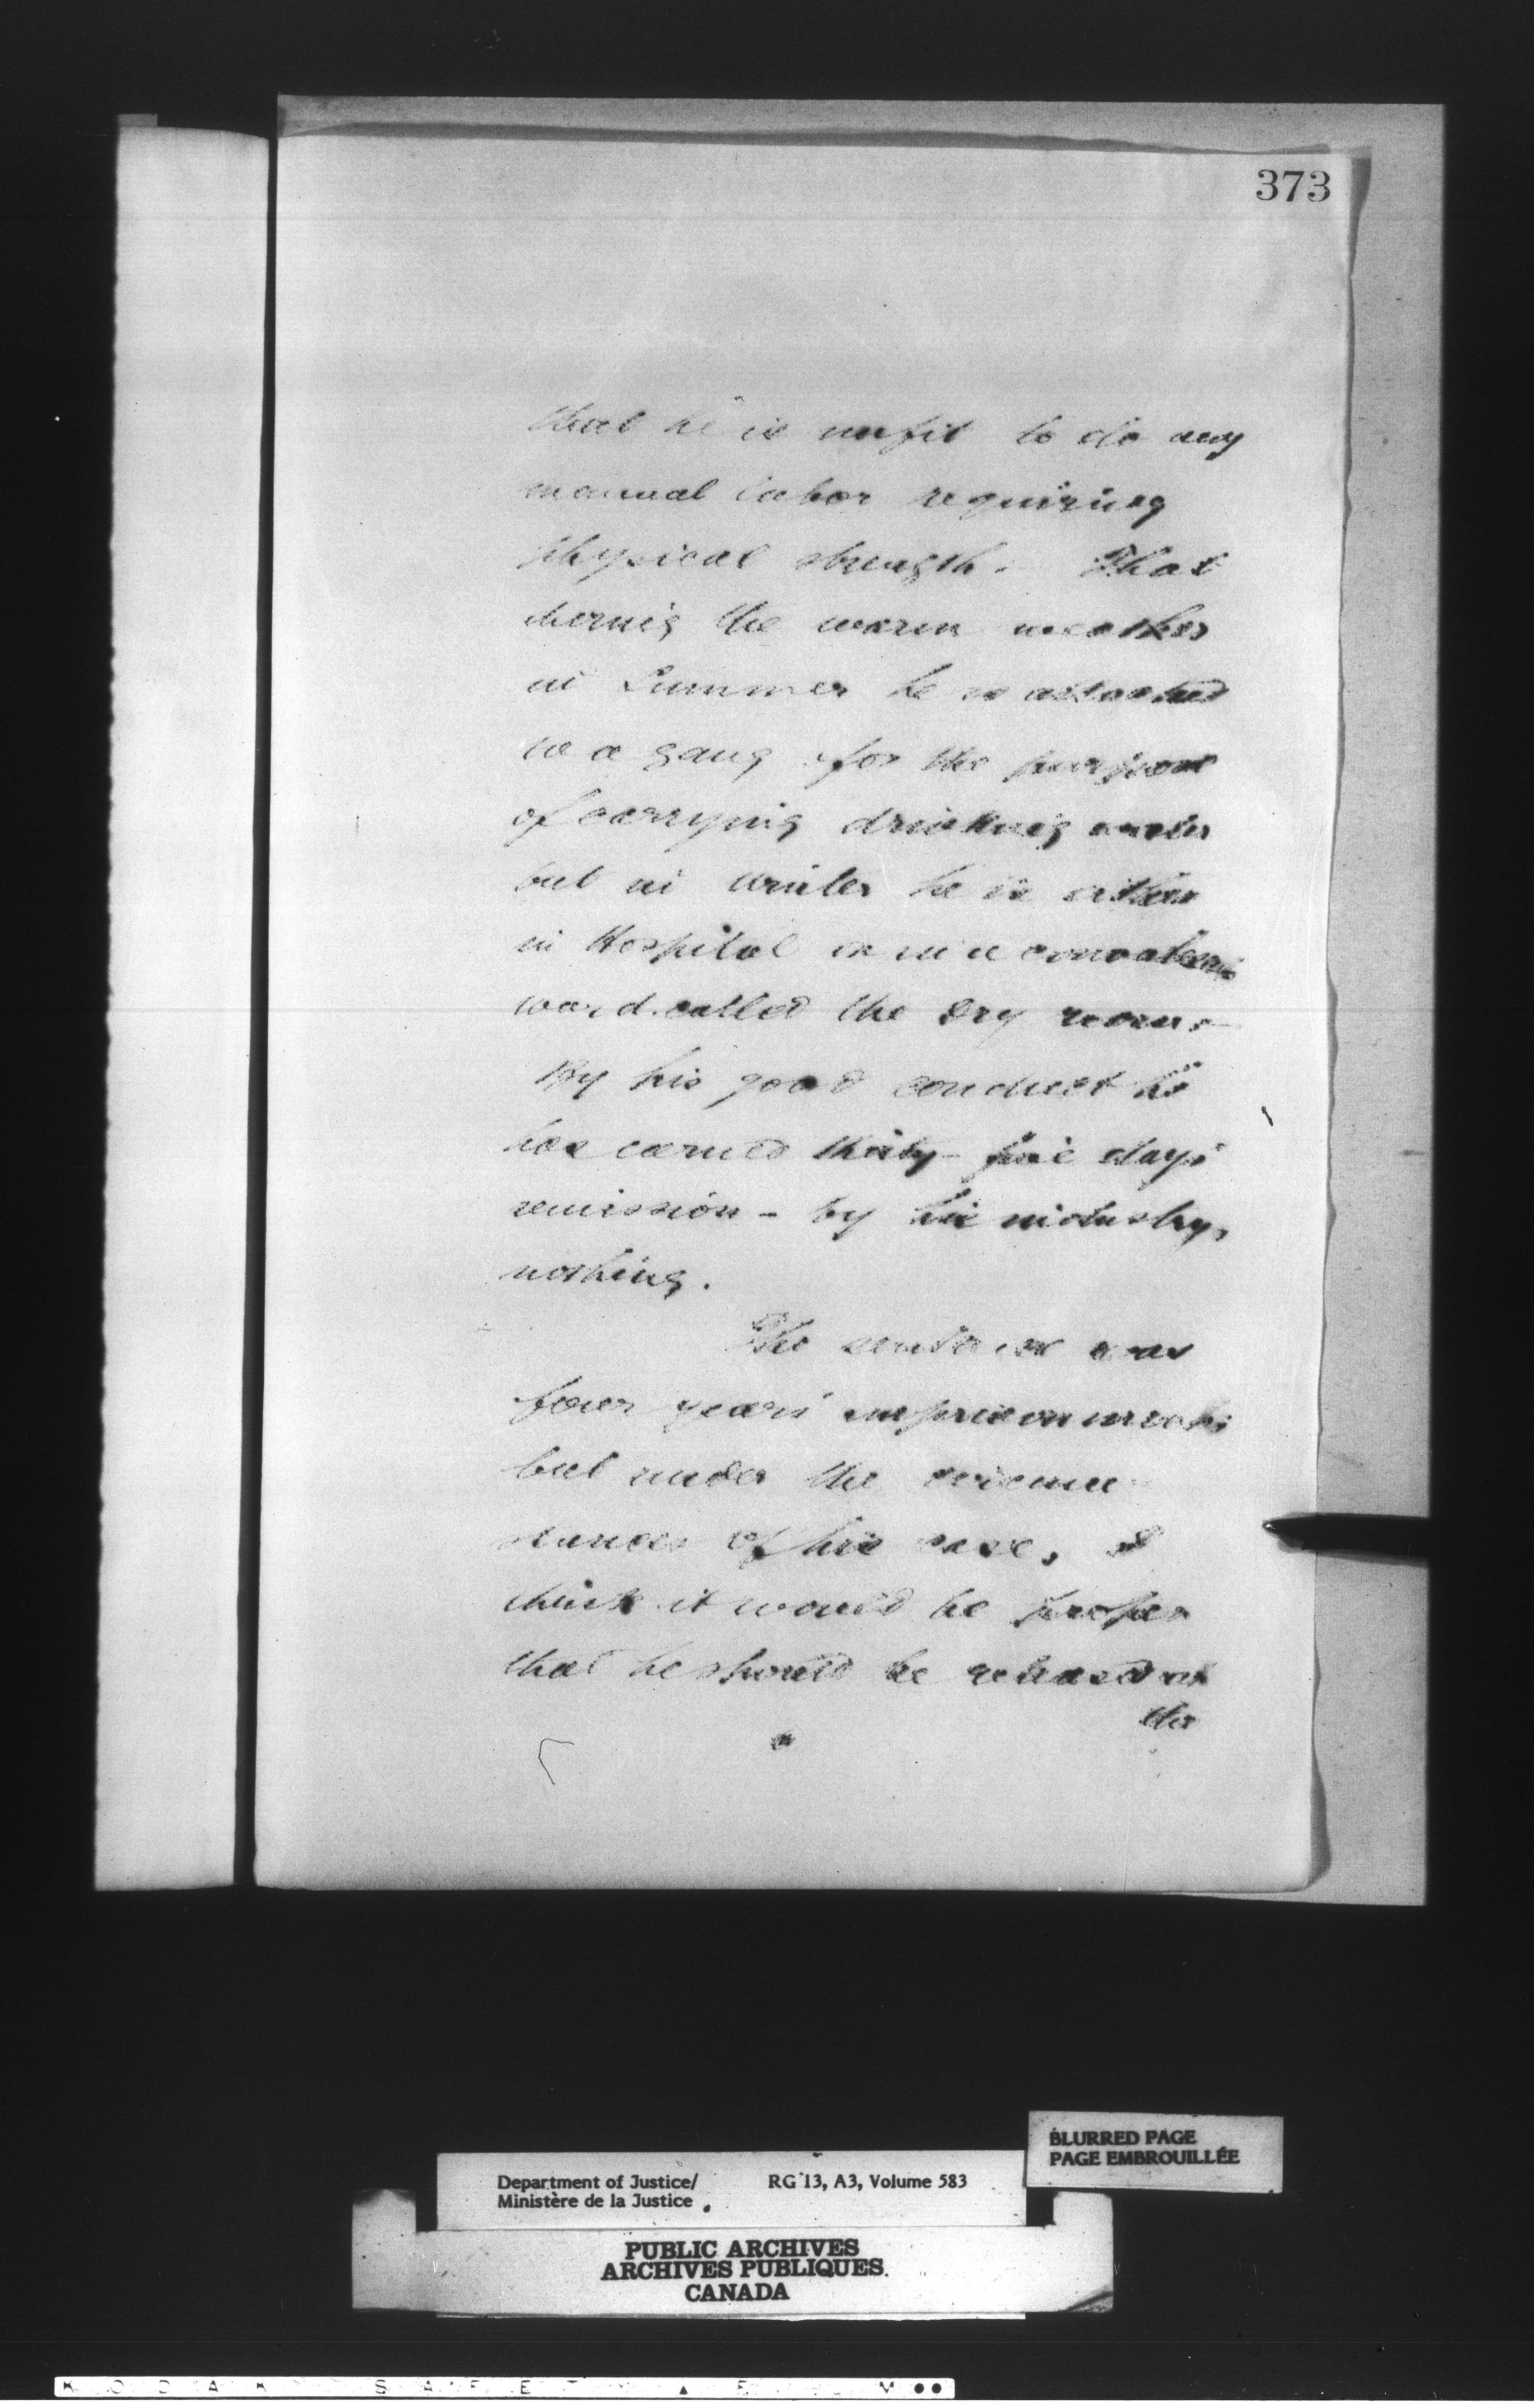 373
that he is unfit to do any
manual labor requiring
physical strength. That
during the warm weather
in Summer he is attached
to a gang for the purpose
of carrying drinking water
but in winter he is either
in Hospital or in a convalescent
ward called the dry room.
By his good conduct he
has earned thirty-five days
remission - by his industry,
nothing.
The sentence was
four years' imprisonment;
but under the circum
stances of his case, I
think it would be proper
that he should be released at
the
BLURRED PAGE
PAGE EMBROUILLÉE
Department of Justice/ RG 13, A3, Volume 583
Ministère de la Justice
PUBLIC ARCHIVES
ARCHIVES PUBLIQUES
CANADA
KODAK SAFETY FILM